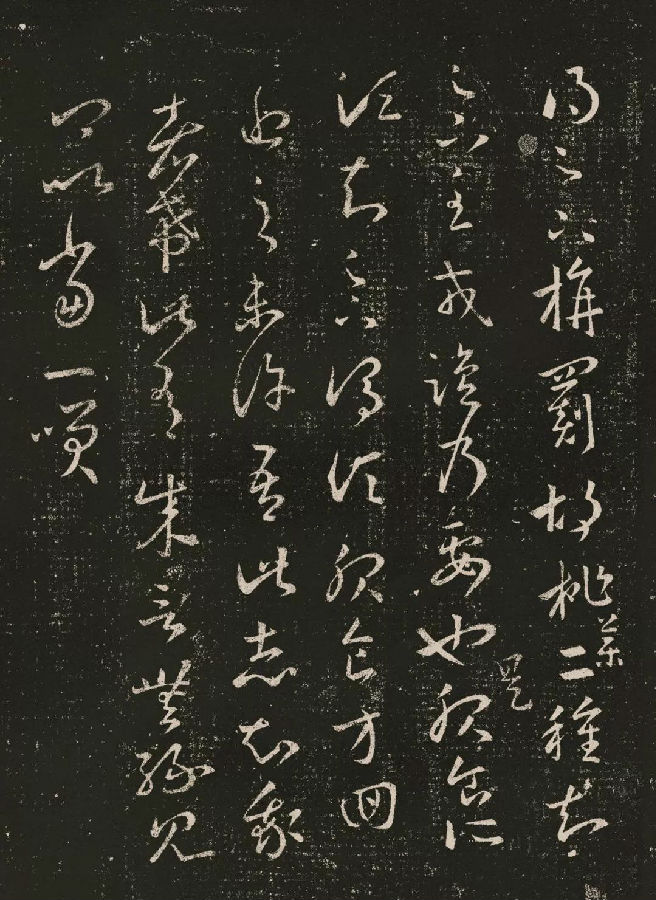 得足下旃罽胡桃藥二種知
足下至戎鹽乃要也是服食所
須知足下謂須服食方回
近之未許吾此志知我
者希此有成言無緣見
卿以當一笑